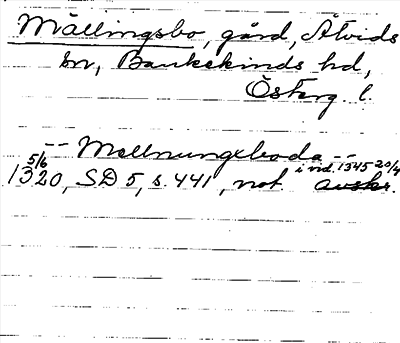 Mällingsbo, gård, Åtvids
sn, Bankekinds hd,
Österg. l.
-- Mællnungxboda --
i vid. 1345 20/4
5/6
1320, SD 5, s. 441, not avskr.